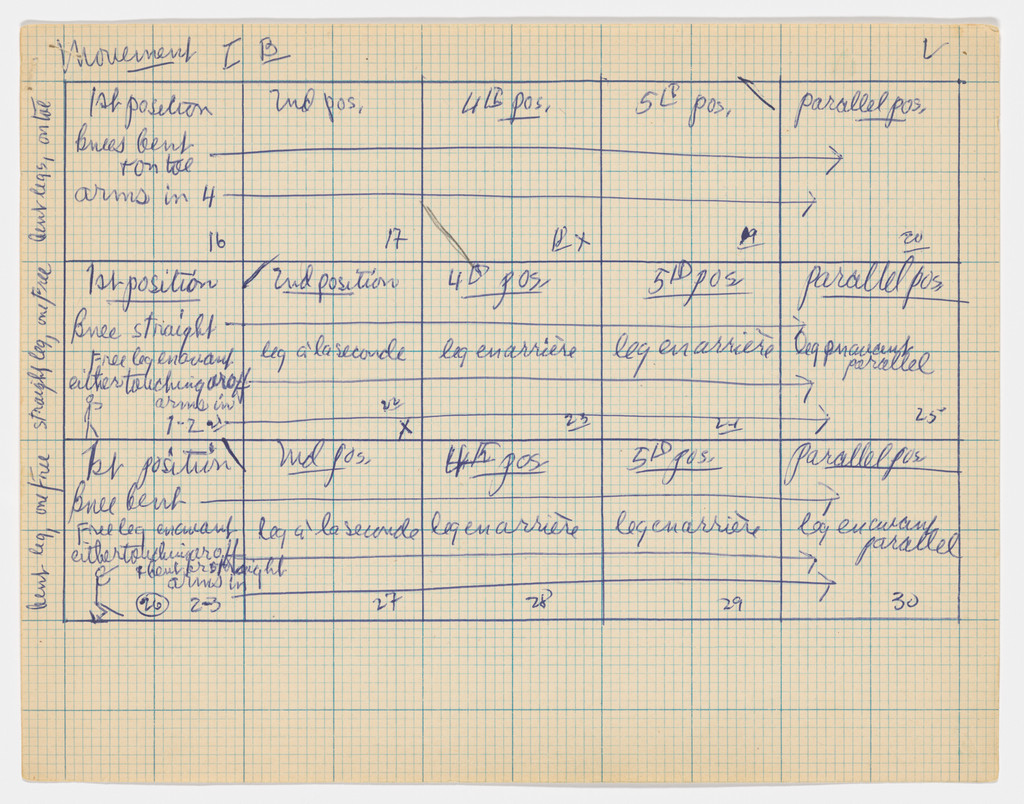 Movement I B
1st position
2nd pos.
4th pos.
5th pos.
parallel pos.
Knees bent
+ on toe
arms in 4
16
17
18 X
19
20
bent legs, on toe
1st position
2nd position
4th pos.
5th pos
parallel pos
Knee straight
Free leg en avant
either touching or off
leg à la seconde
leg en arrière
leg en arrière
leg en avant
parallel
arms in
1-2
22
X
23
24
25
straight leg, one free
1st position
2nd pos.
4th pos
5th pos.
parallel pos
Knee bent
Free leg en avant
either touching or off
+ bent or straight
leg à la seconde
leg en arrière
leg en arrière
leg en avant
parallel
arms in
26
2-3
27
28
29
30
bent leg, one free